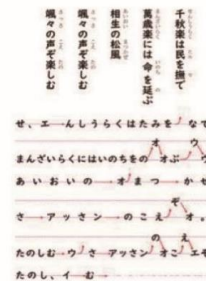 千秋楽は民を撫で
萬歳楽には命を延ぶ
相生の松風
颯々の声ぞ楽しむ
颯々の声ぞ楽しむ
せ、エーんしうらくはたみを なで
まんざいらくにはいのちをの オ オぶ ウ ウ
あいおいの ー オ まつ ー かぜ
さ ー アッさ ン ー の こ え ぞ オ 。
たのしむ ー ウ さ ー アッさン ー の オ こ え エ ぞ
たのし、イ ー む ー